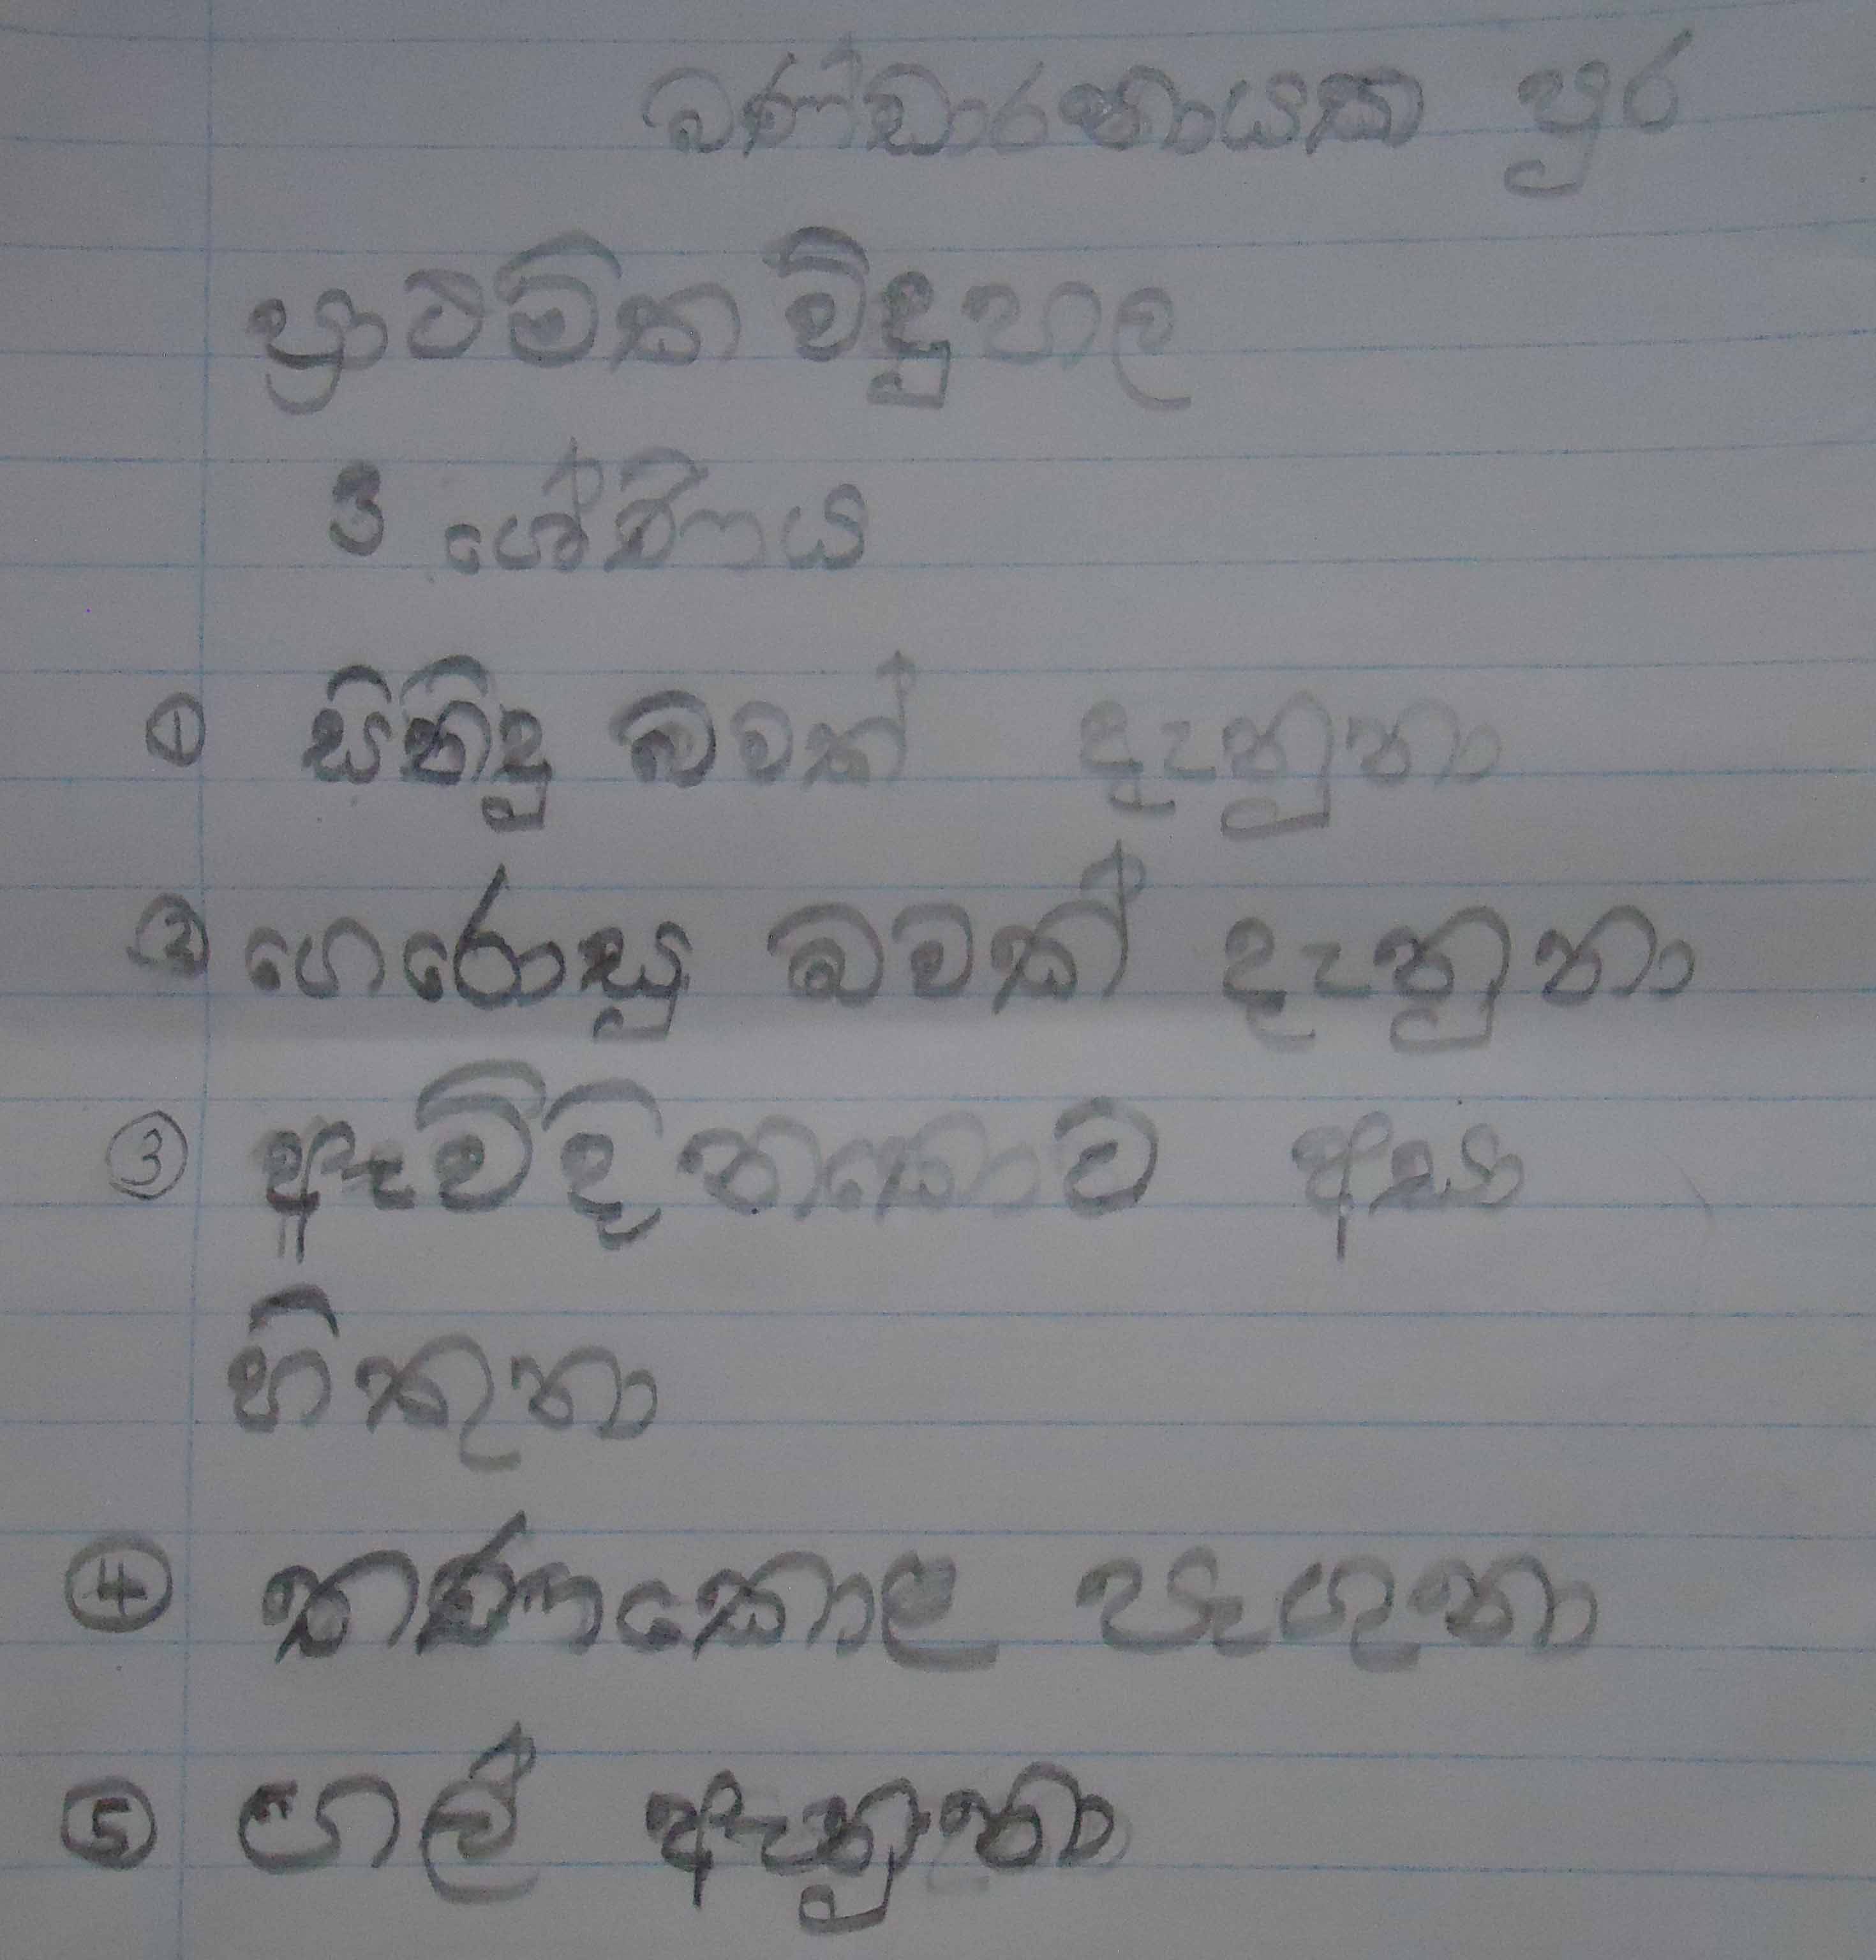 බණ්ඩාරනායක පුර
ප්‍රාථමික විදුහල
3 ශ්‍රේණිය
① සිනිදු බවක් දැනුනා
② ගෙරොසු බවක් දැනුනා
③ ඇවිදිනකොට අසා
හිතුනා
④ තණකොළ පෑගුනා
⑤ ගල් ඇනුනා